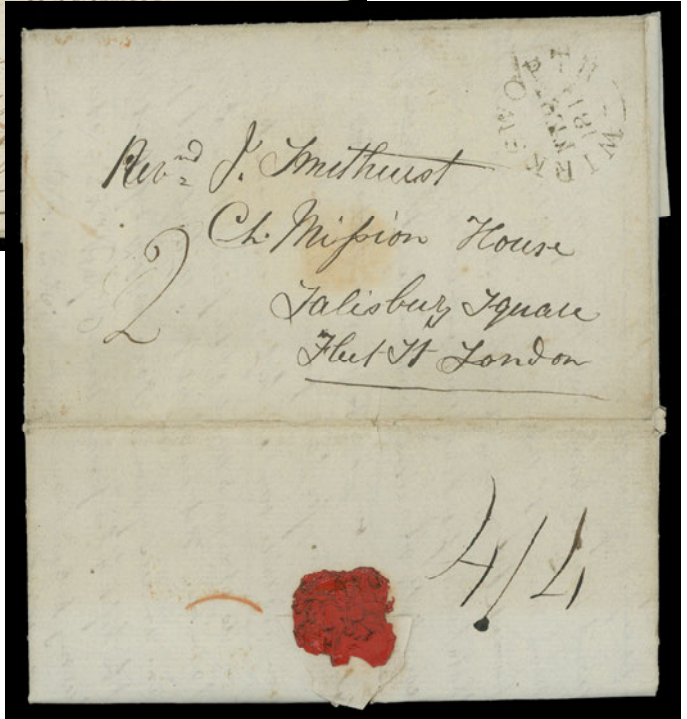 WIRKSWORTH
Revnd J. Smethurst
Ch. Mission House
2
Salisbury Square
Fleet St London
4/4